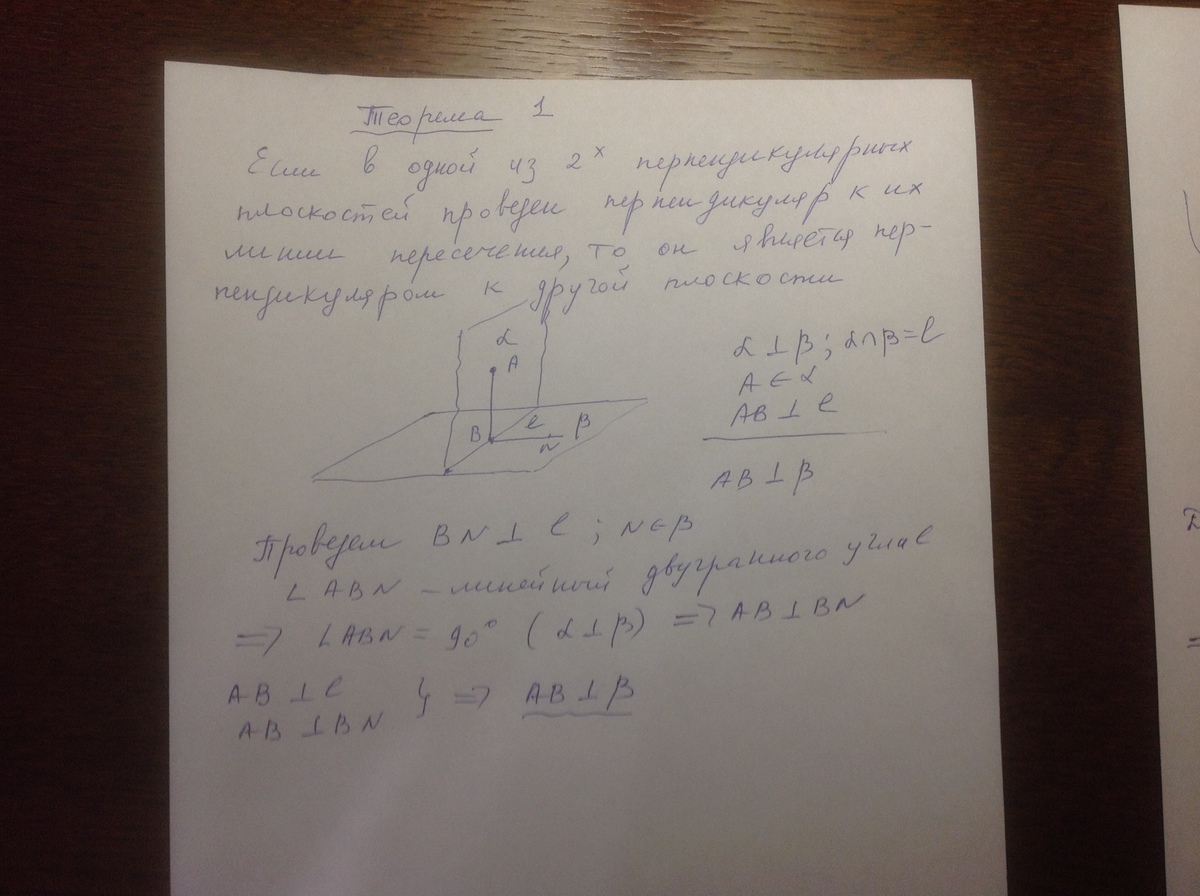 Теорема 1
Если в одной из 2х перпендикулярных
плоскостей проведен перпендикуляр к их
линии пересечения, то он является пер-
пендикуляром к другой плоскости
α
A
B
l
β
N
α ⊥ β; α ∩ β = l
A ∈ α
AB ⊥ l
AB ⊥ β
Проведем BN ⊥ l ; N ∈ β
∠ ABN – линейный двугранного угла l
=> ∠ABN = 90° (α ⊥ β) => AB ⊥ BN
AB ⊥ l
AB ⊥ BN } => AB ⊥ β